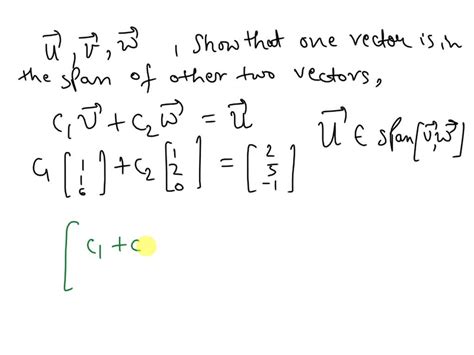 u⃗, v⃗, w⃗ , show that one vector is in
the span of other two vectors,
c₁v⃗ + c₂w⃗ = u⃗
u⃗ ∈ span[v⃗,w⃗]
c₁[1 1 6] + c₂[1 2 0] = [2 5 -1]
[c₁ + c